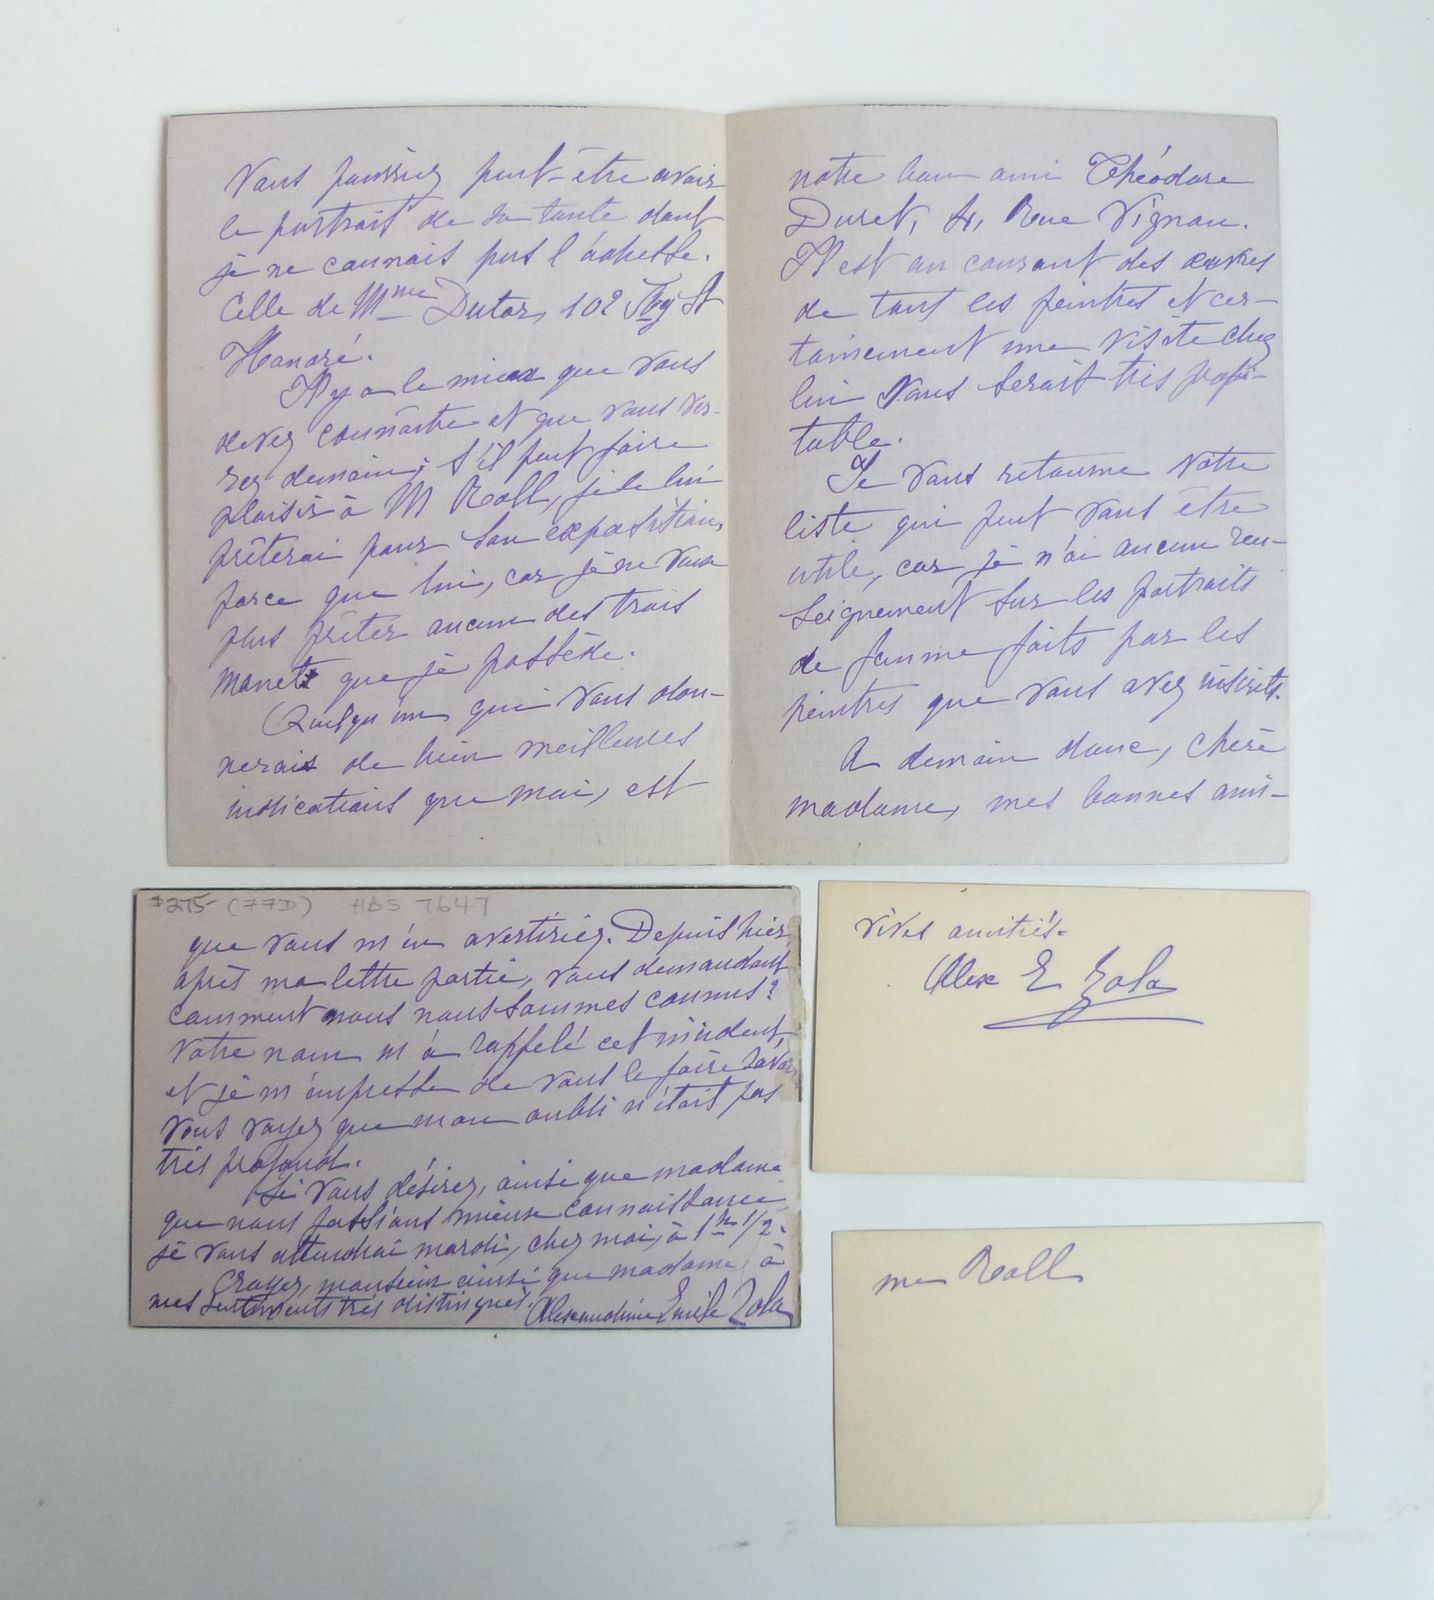 Vous pourriez peut-être avoir
le portrait de sa tante dont
je ne connais pas l'adresse.
Celle de Mme Dutar, 102 Fbg St
Honoré.
Il y a le mien que vous
devez connaître et que vous ver-
rez demain; s'il peut faire
plaisir à M Roll, je le lui
prêterai pour son exposition,
parce que lui, car je ne veux
plus prêter aucun des trois
manets que je possède.
Quelqu'un qui vous don-
nerais de bien meilleures
indications que moi, est
notre bon ami Théodore
Duret, 4, Rue Vignon.
Il est au courant des œuvres
de tous les peintres et cer-
tainement une visite chez
lui vous serait très profi-
table.
Je vous retourne votre
liste qui peut vous être
utile, car je n'ai aucun ren-
seignement sur les portraits
de femme faits par les
peintres que vous avez inscrits.
A demain donc, chère
madame, mes bonnes ami-
$275- (77D) HBS 7647
que vous m'en avertiriez. Depuis hier,
après ma lettre partie, vous demandant
comment nous nous sommes connus?
Votre nom m'a rappelé cet incident,
et je m'empresse de vous le faire savoir
Vous voyez que mon oubli n'était pas
très profond.
Si vous désirez, ainsi que madame
que nous fassions mieux connaissance
je vous attendrai mardi, chez moi, à 1h 1/2.
Croyez, monsieur ainsi que madame, à
mes sentiments très distingués. Alexandrine Emile Zola
vives amitiés.
Alex E Zola
me Roll